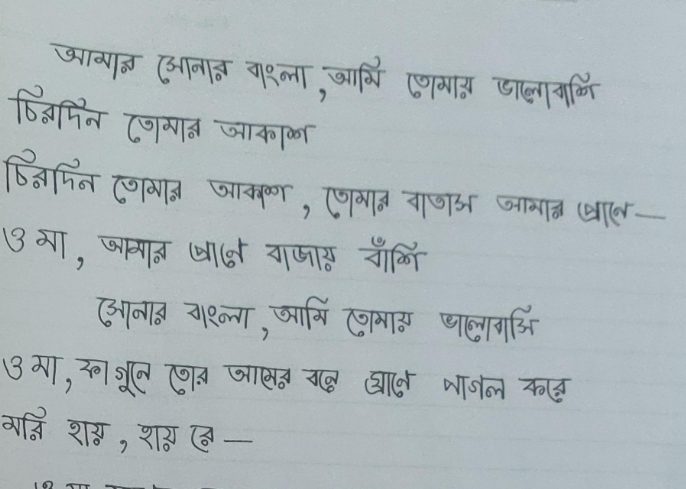 আমার সোনার বাংলা, আমি তোমায় ভালোবাসি
চিরদিন তোমার আকাশ
চিরদিন তোমার আকাশ, তোমার বাতাস আমার প্রাণে—
ও মা, আমার প্রাণে বাজায় বাঁশি
সোনার বাংলা, আমি তোমায় ভালোবাসি
ও মা, ফাগুনে তোর আমের বনে ঘ্রাণে পাগল করে
মরি হায়, হায় রে—